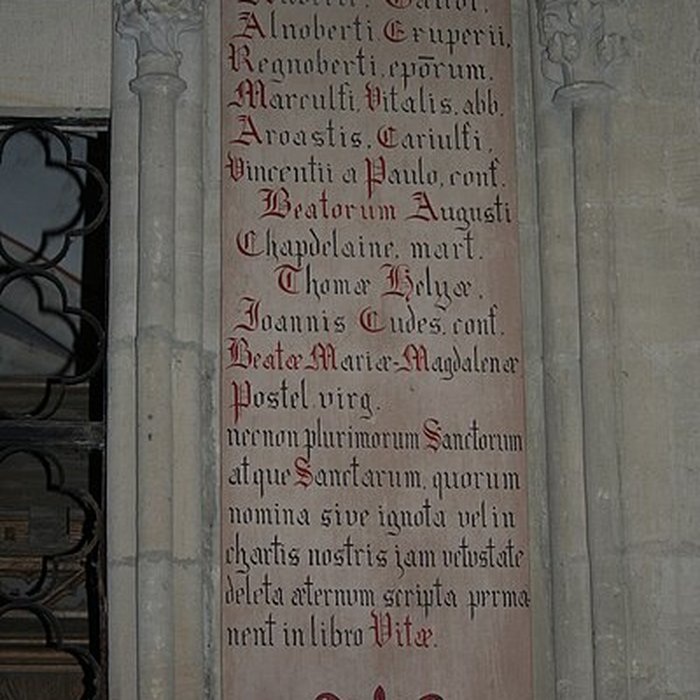 Alnoberti Exuperii,
Regnoberti, epōrum.
Marculfi, Vitalis, abb.
Aroastis, Cariulfi,
Vincentii a Paulo, conf.
Beatorum Augusti
Chapdelaine, mart.
Thomæ Helyæ,
Joannis Eudes, conf.
Beatæ Mariæ-Magdalenæ
Postel virg.
necnon plurimorum Sanctorum
atque Sanctarum, quorum
nomina sive ignota vel in
chartis nostris jam vetustate
deleta æternum scripta perma-
nent in libro Vitæ.